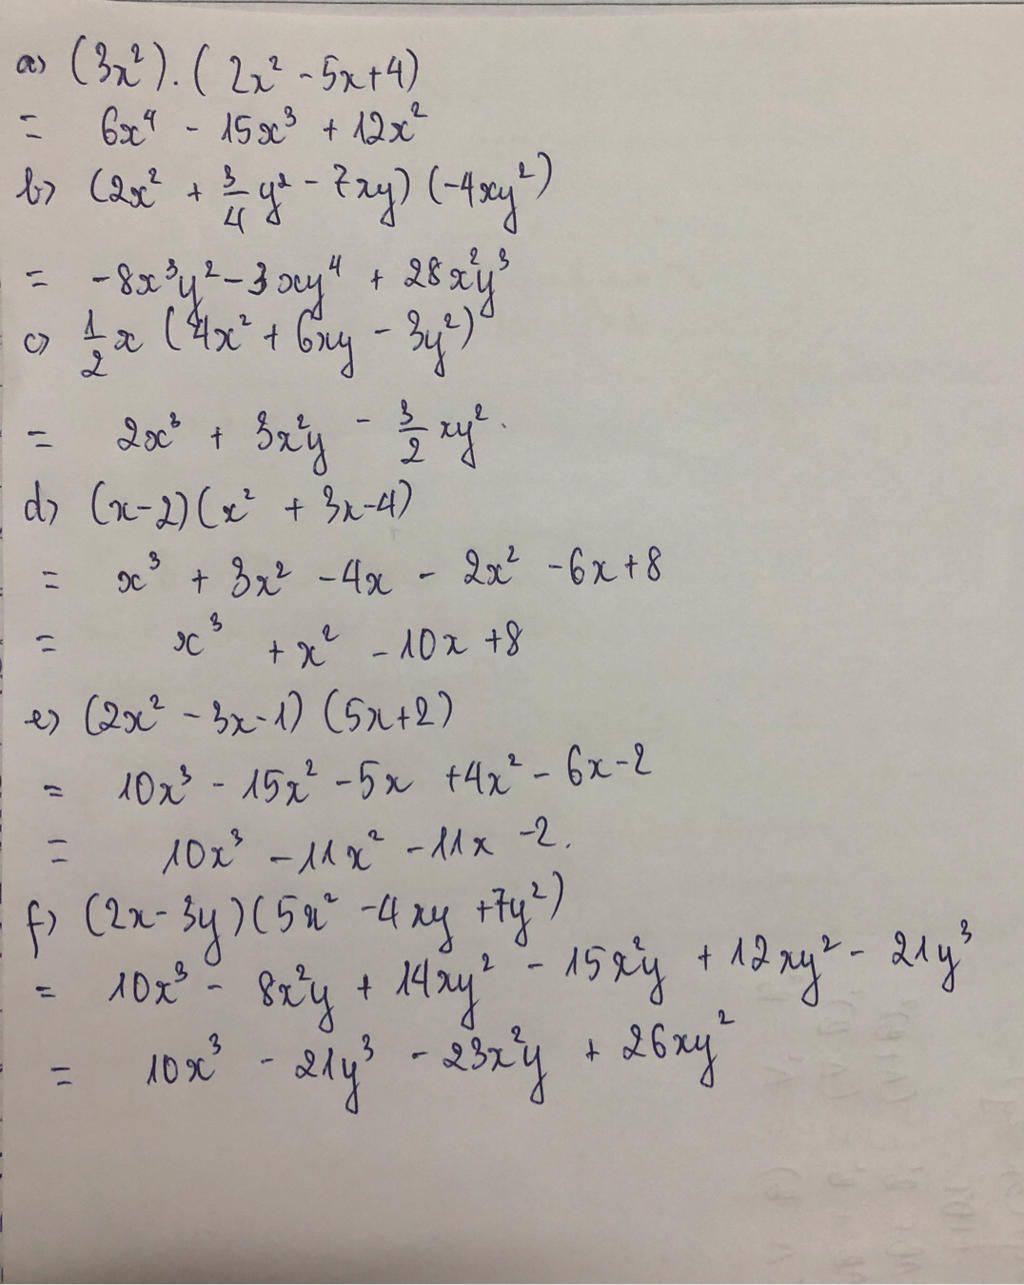 a) (3x²).(2x² - 5x+4)
= 6x⁴ - 15x³ + 12x²
b) (2x² + 3/4 y² - 7xy)(-4xy²)
= -8x³y² - 3xy⁴ + 28x²y³
c) 1/2 x (4x² + 6xy - 3y²)
= 2x³ + 3x²y - 3/2 xy².
d) (x-2)(x² + 3x-4)
= x³ + 3x² - 4x - 2x² - 6x+8
= x³ + x² - 10x +8
e) (2x² - 3x-1) (5x+2)
= 10x³ - 15x² - 5x +4x² - 6x-2
= 10x³ - 11x² - 11x -2.
f) (2x- 3y)(5x² - 4xy +7y²)
= 10x³ - 8x²y + 14xy² - 15x²y + 12xy² - 21y³
= 10x³ - 21y³ - 23x²y + 26xy²